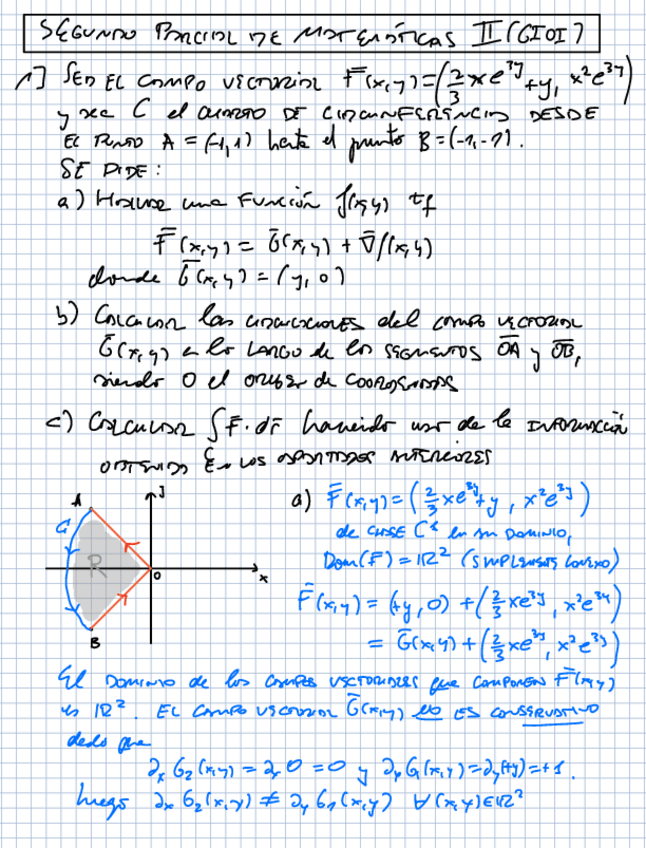 SEGUNDO PARCIAL DE MATEMÁTICAS II (GIOI)
1] SEA EL CAMPO VECTORIAL F̄(x,y)=(2/3 xe^{3y}+y, x²e^{3y})
y sea C el CUARTO DE CIRCUNFERENCIA DESDE
EL PUNTO A = (-1,1) hasta el punto B=(-1,-1).
SE PIDE:
a) HALLAR una FUNCIÓN f(x,y) tq
F̄(x,y) = Ḡ(x,y) + ∇̄f(x,y)
donde Ḡ(x,y) = (y,0)
b) CALCULAR las CIRCULACIONES del CAMPO VECTORIAL
Ḡ(x,y) a lo LARGO de los SEGMENTOS OA y OB,
siendo O el ORIGEN de COORDENADAS
c) CALCULAR ∫F̄·dr̄ haciendo uso de la INFORMACIÓN
OBTENIDA EN LOS APARTADOS ANTERIORES
A
y
C
R
O
x
B
a) F̄(x,y)=(2/3 xe^{3y}+y, x²e^{3y})
de CLASE C¹ en su DOMINIO,
Dom(F̄)=ℝ² (SIMPLEMENTE CONEXO)
F̄(x,y) = (+y,0) + (2/3 xe^{3y}, x²e^{3y})
= Ḡ(x,y) + (2/3 xe^{3y}, x²e^{3y})
El DOMINIO de los CAMPOS VECTORIALES que COMPONEN F̄(x,y)
es ℝ². EL CAMPO VECTORIAL Ḡ(x,y) NO ES CONSERVATIVO
dado que
∂ₓG₂(x,y) = ∂ₓ0 = 0 y ∂yG₁(x,y)=∂y(+y)=+1.
luego ∂ₓG₂(x,y) ≠ ∂yG₁(x,y) ∀(x,y)∈ℝ²